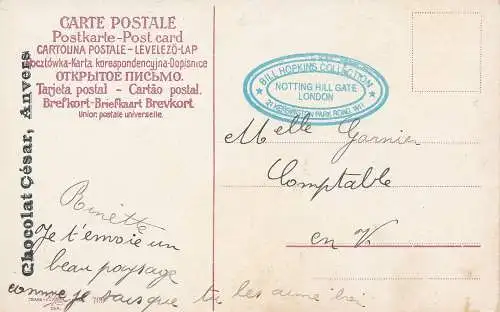 CARTE POSTALE
Postkarte-Post card
CARTOLINA POSTALE-LEVELEZŐ-LAP
Pocztówka-Karta korespondencyjna-Dopisnice
ОТКРЫТОЕ ПИСЬМО.
Tarjeta postal - Cartão postal.
Brefkort-Briefkaart Brevkort.
Union postale universelle.
Chocolat César, Anvers
BILL HOPKINS COLLECTION
NOTTING HILL GATE
LONDON
KENSINGTON PARK ROAD, W11
Melle Garnier
Comptable
en V.
Rinette
Je t'envoie un
beau paysage
comme je sais que tu les aime